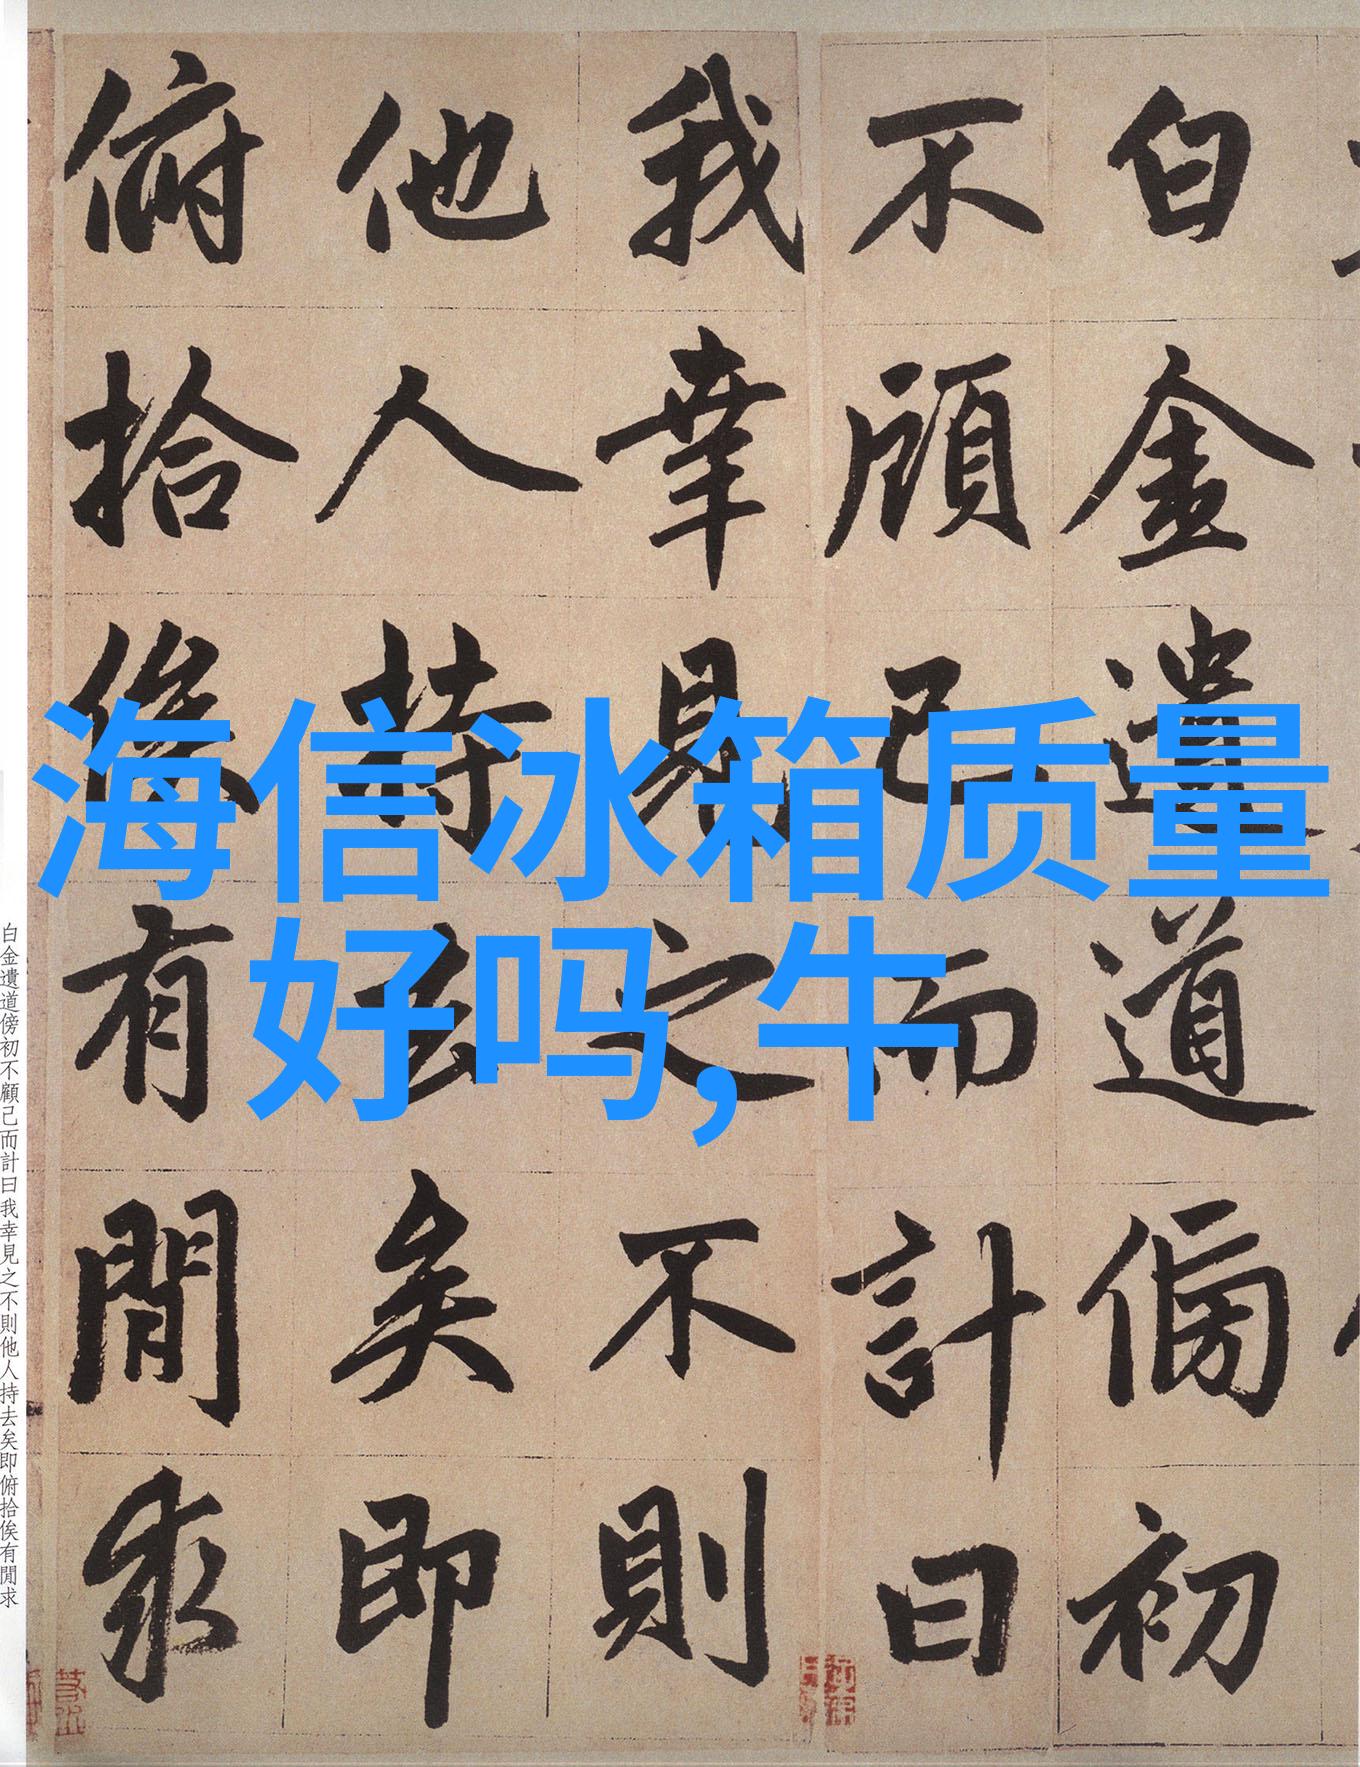 海信冰箱质量
好吗,牛
白金遺道傍初
不顧己而計曰
我幸見之不則
他人持去矣即
俯拾俟有閒求
白金遺道傍初不顧己而計曰我幸見之不則他人持去矣即俯拾俟有閒求